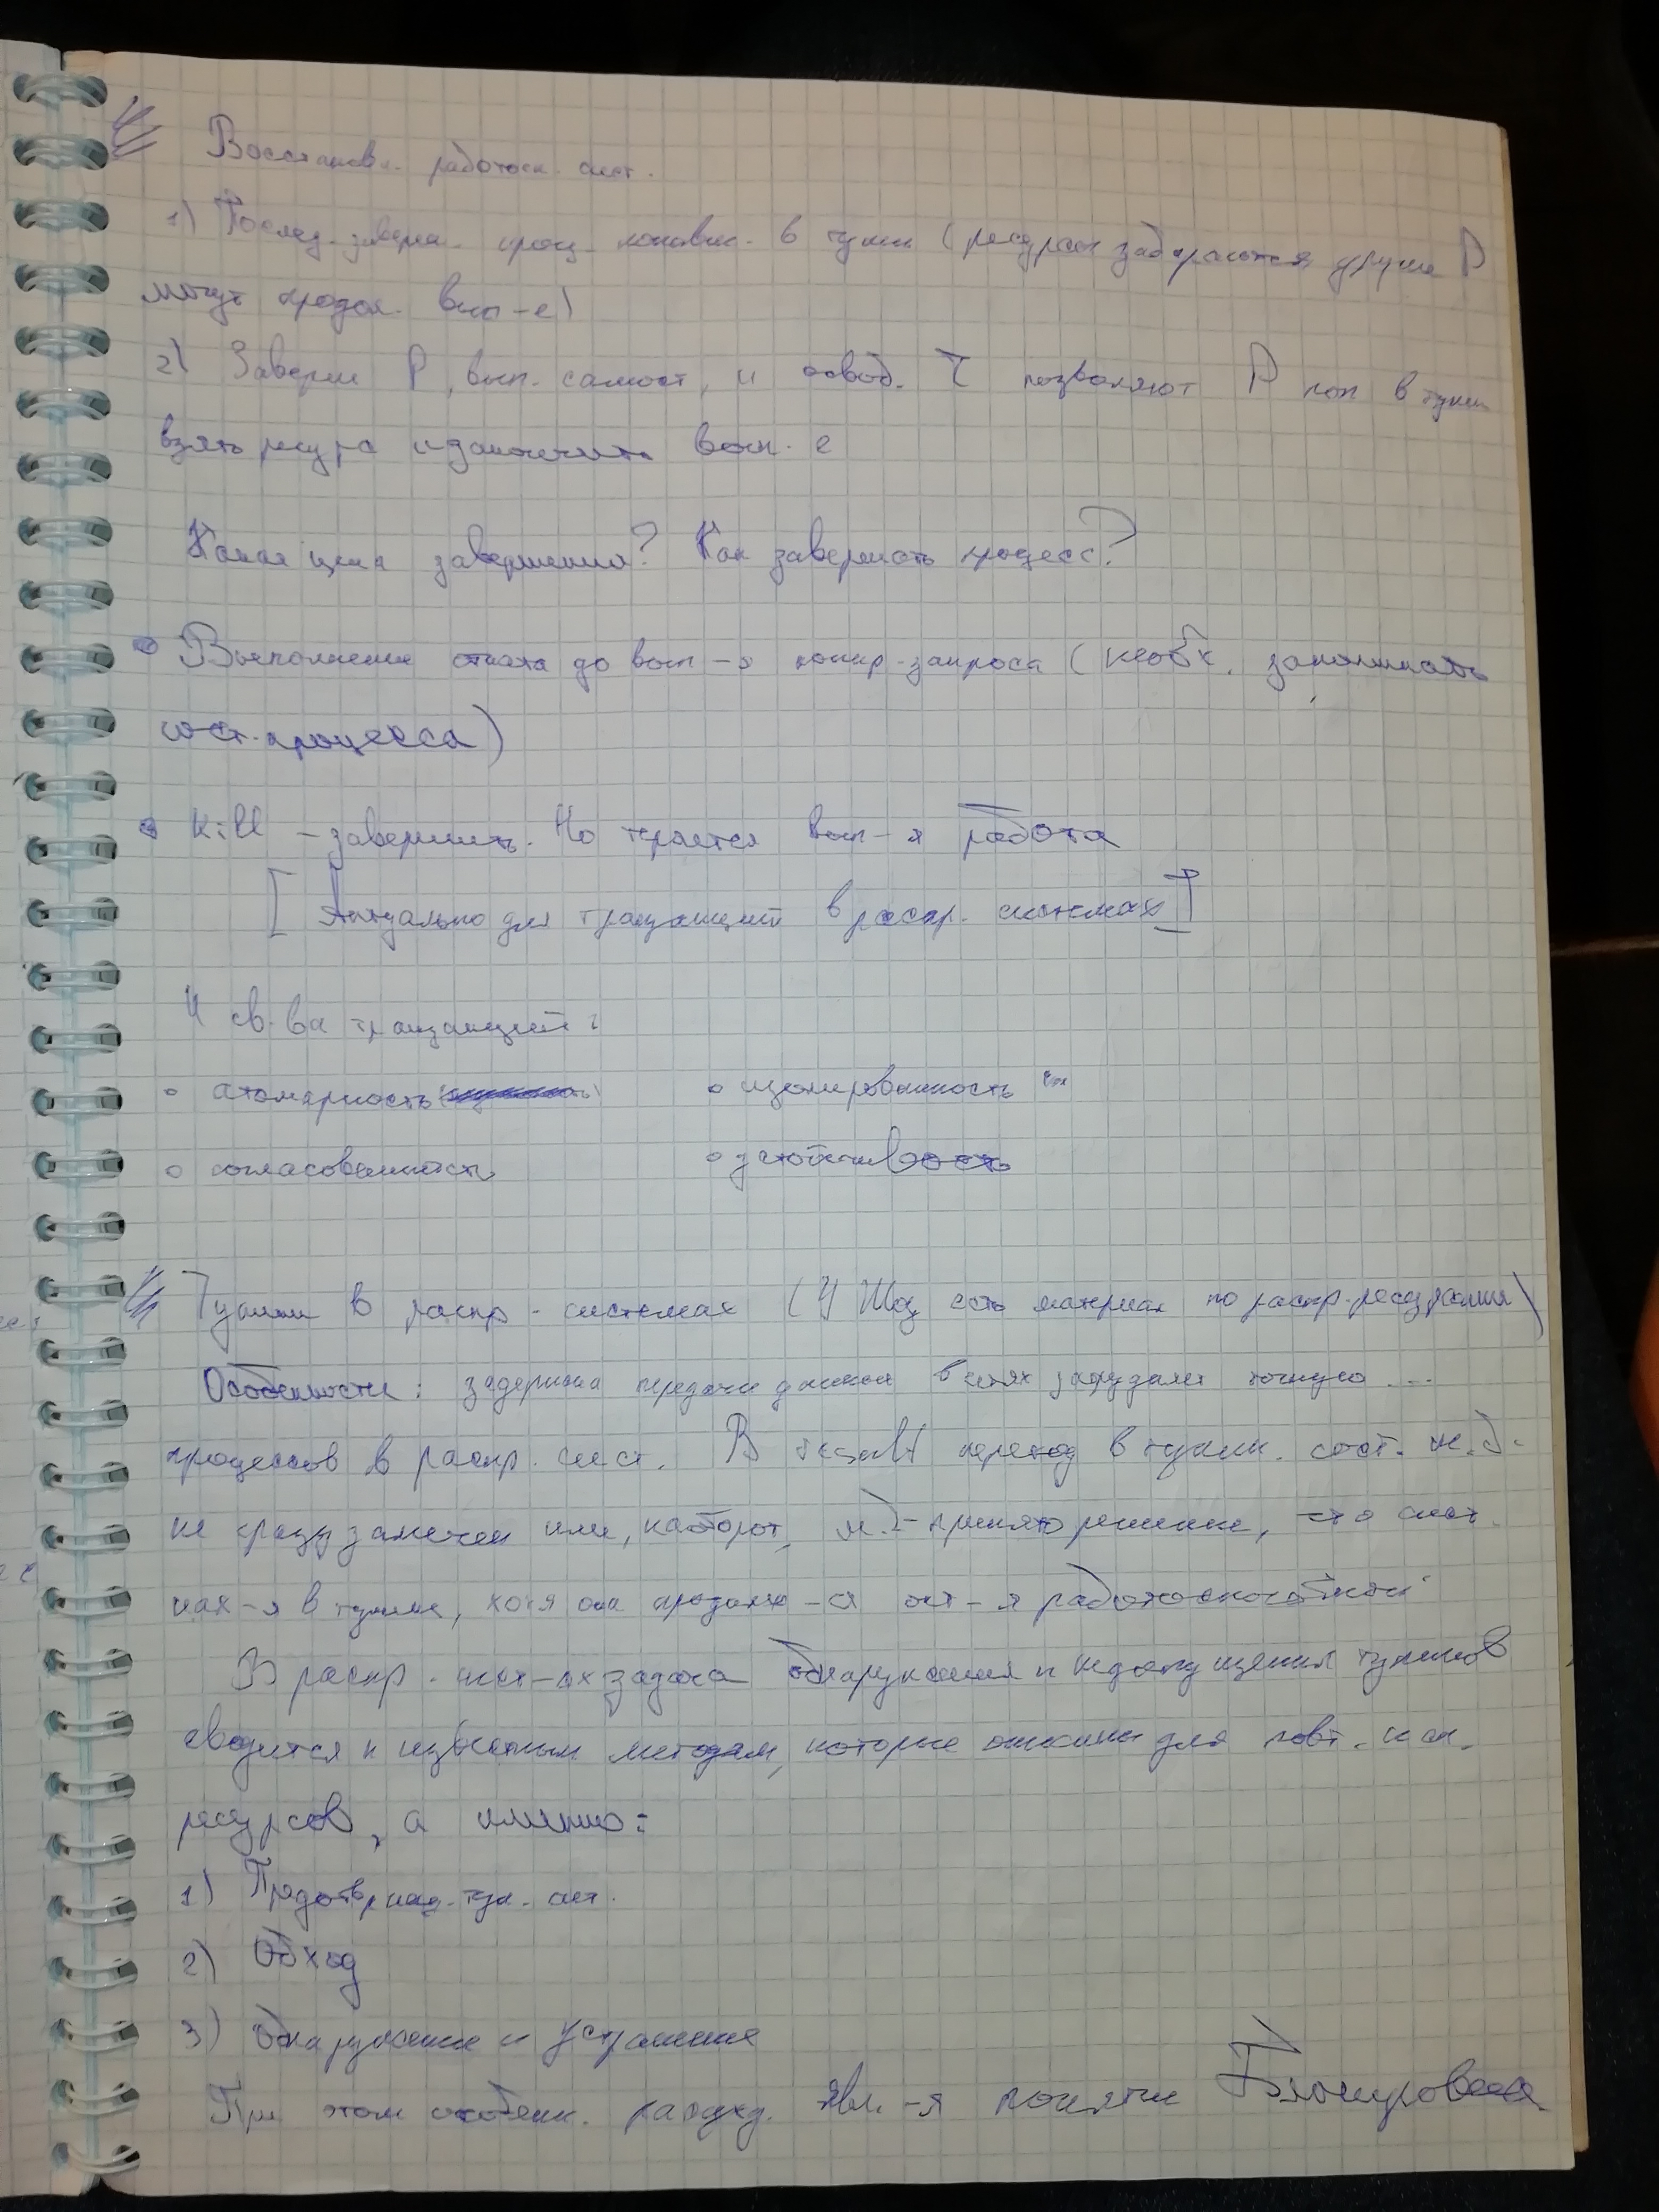 Восстановл. работосп. сист.
1) Послед. заверш. проц. попавш. в тупик (ресурсы забираются, другие P
могут продол. вып-е)
2) Заверш P, вып. самост, и освоб. r позволяют P поп в тупик
взять ресурс и закончить вып-е
Какая цена завершения? Как завершать процесс?
Выполнение отката до вып-я копир-запроса (необх. запоминать
сост. процесса)
Kill - завершить. Но теряется вып-я работа
[Актуально для транзакций в распр. системах]
4 св-ва транзакций:
атомарность
изолированность
согласованность
устойчивость
Тупики в распр. системах (У Шоу есть материал по распр. ресурсам)
Особенности: задержка передачи данных в сетях затрудняет точную ...
процессов в распр. сист. В result переход в тупик. сост. м.б.
не сразу замечен или, наоборот, м.б. принято решение, что сист.
нах-я в тупике, хотя она продолж-я ост-я работоспособной
В распр. сист-ах задача обнаружения и недопущения тупиков
сводится к известным методам, которые описаны для повт. исп.
ресурсов, а именно:
1) Предотвращ. туп. сит.
2) Обход
3) Обнаружение и устранение
При этом особенн. подход. явл-я понятие Блокировка